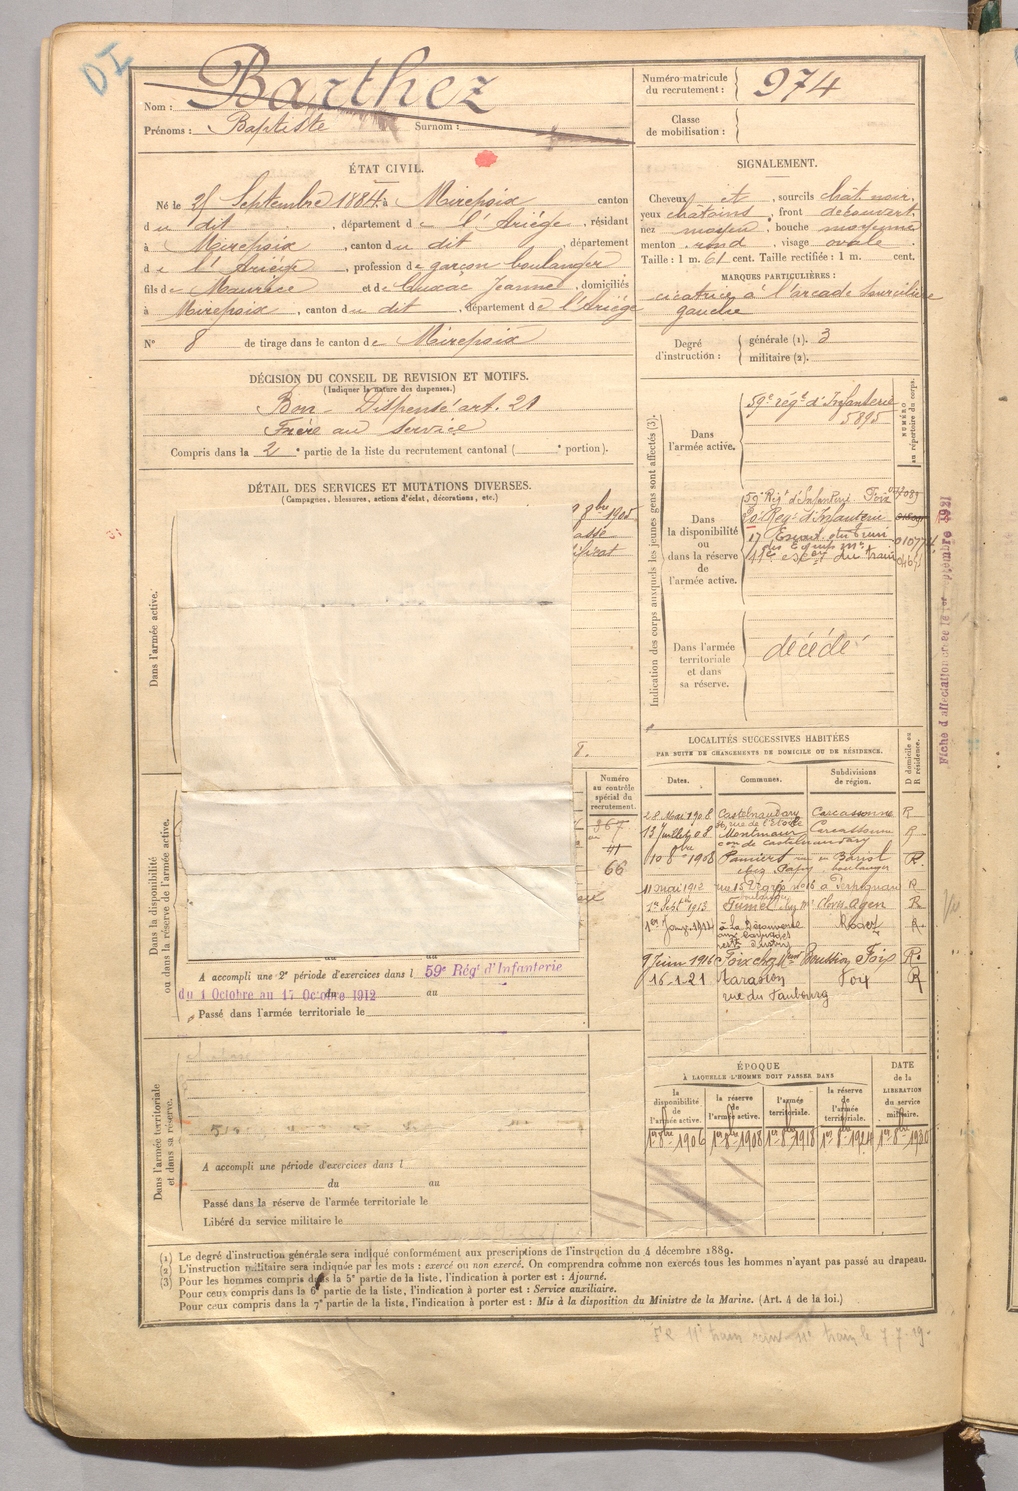 DI
Nom : Barthez
Prénoms : Baptiste Surnom :
Numéro matricule du recrutement : 974
Classe de mobilisation :
ÉTAT CIVIL.
Né le Septembre 1884 à Mirepoix canton
du dit, département de l'Ariège, résidant
à Mirepoix, canton du dit, département
de l'Ariège, profession de garçon boulanger
fils de Maurice et de Jeanne, domiciliés
à Mirepoix, canton du dit, département de l'Ariège
N° 8 de tirage dans le canton de Mirepoix
SIGNALEMENT.
Cheveux et, sourcils chât noir,
yeux châtains, front découvert,
nez moyen, bouche moyenne
menton rond, visage ovale
Taille : 1 m. 61 cent. Taille rectifiée : 1 m. cent.
MARQUES PARTICULIÈRES :
cicatrice à l'arcade sourcilière
gauche
Degré d'instruction :
générale (1). 3
militaire (2).
DÉCISION DU CONSEIL DE REVISION ET MOTIFS.
(Indiquer la nature des dispenses.)
Bon - Dispensé art. 21
Frère au service
Compris dans la 2e partie de la liste du recrutement cantonal ( e portion).
DÉTAIL DES SERVICES ET MUTATIONS DIVERSES.
(Campagnes, blessures, actions d'éclat, décorations, etc.)
8bre 1905
Dans l'armée active.
Dans la disponibilité
ou dans la réserve de l'armée active.
Numéro
au contrôle
spécial du
recrutement.
367
41
66
A accompli une 2e période d'exercices dans l 59e Régt d'Infanterie
du 1 Octobre au 17 Octobre 1912 du au
Passé dans l'armée territoriale le
Dans l'armée territoriale
et dans sa réserve.
A accompli une période d'exercices dans l
du au
Passé dans la réserve de l'armée territoriale le
Libéré du service militaire le
Indication des corps auxquels les jeunes gens sont affectés (3).
NUMÉRO
au répertoire du corps.
Dans
l'armée active.
59e régt d'Infanterie
5895
Dans
la disponibilité
ou
dans la réserve
de
l'armée active.
59e Régt d'Infanterie Foix
Régt d'Infanterie
17 Escon du Train
des Equip. Mres 010774
du train
Dans l'armée
territoriale
et dans
sa réserve.
décédé
Fiche d'affectation
LOCALITÉS SUCCESSIVES HABITÉES
PAR SUITE DE CHANGEMENTS DE DOMICILE OU DE RÉSIDENCE.
D domicile ou
R résidence.
Dates. Communes. Subdivisions de région.
28 Mai 1908 Castelnaudary Carcassonne R
rue de l'Etoile
13 Juillet 08 Montmaur Carcassonne R
con de Castelnaudary
10 8bre 1908 Pamiers R.
boulanger
11 mai 1912 à Perpignan R
1er Septbre 1913 Fumel Agen R
1er Janv. 1914 à la Découverte Rodez R
9 Juin 1916 Foix chez Foix R.
16-1-21 Tarascon Foix R
rue du Faubourg
ÉPOQUE
À LAQUELLE L'HOMME DOIT PASSER DANS
DATE
de la
LIBÉRATION
du service
militaire.
la disponibilité de l'armée active.
la réserve de l'armée active.
l'armée territoriale.
la réserve de l'armée territoriale.
1er 8bre 1906 1er 8bre 1908 1er 8bre 1918 1er 8bre 1924 1er 8bre 1930
(1) Le degré d'instruction générale sera indiqué conformément aux prescriptions de l'instruction du 4 décembre 1889.
(2) L'instruction militaire sera indiquée par les mots : exercé ou non exercé. On comprendra comme non exercés tous les hommes n'ayant pas passé au drapeau.
(3) Pour les hommes compris dans la 5e partie de la liste, l'indication à porter est : Ajourné.
Pour ceux compris dans la 6e partie de la liste, l'indication à porter est : Service auxiliaire.
Pour ceux compris dans la 7e partie de la liste, l'indication à porter est : Mis à la disposition du Ministre de la Marine. (Art. 4 de la loi.)